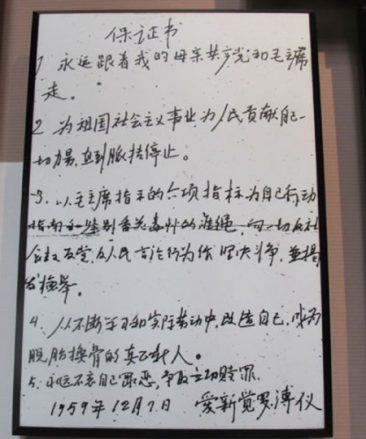 保证书
1 永远跟着我的母亲共产党和毛主席
走。
2 为祖国社会主义事业为人民贡献自己一
切力量,直到脉搏停止。
3. 以毛主席指示的六项指标为自己行动
指南和鉴别香花毒草的准绳,向一切反社
会主义反党,反人民言论行为作坚决斗争,并揭
发检举。
4. 从不断学习和实际劳动中,改造自己,成为
脱胎换骨的真正新人。
5. 永远不忘自己罪恶,争取立功赎罪.
1959年12月7日 爱新觉罗溥仪